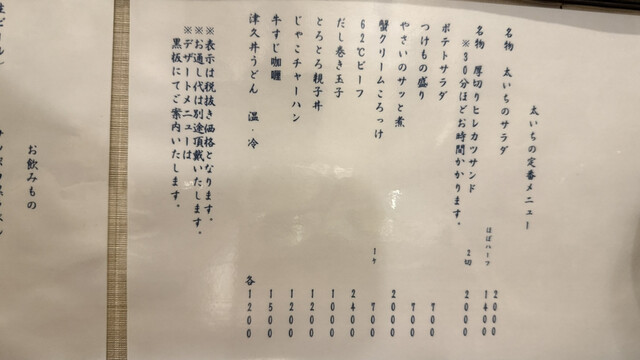 太いちの定番メニュー
名物 太いちのサラダ 2000
ほぼハーフ 1400
名物 厚切りヒレカツサンド 2切 2000
※30分ほどお時間かかります。
ポテトサラダ 700
つけもの盛り 700
やさいのサッと煮 2000
蟹クリームころっけ 1ケ 700
62℃ビーフ 2400
だし巻き玉子 1000
とろとろ親子丼 1200
じゃこチャーハン 1200
牛すじ咖喱 1500
津久井うどん 温・冷 各1200
※表示は税抜き価格となります。
※お通し代は別途頂戴いたします。
※デザートメニューは
黒板にてご案内いたします。
お飲みもの